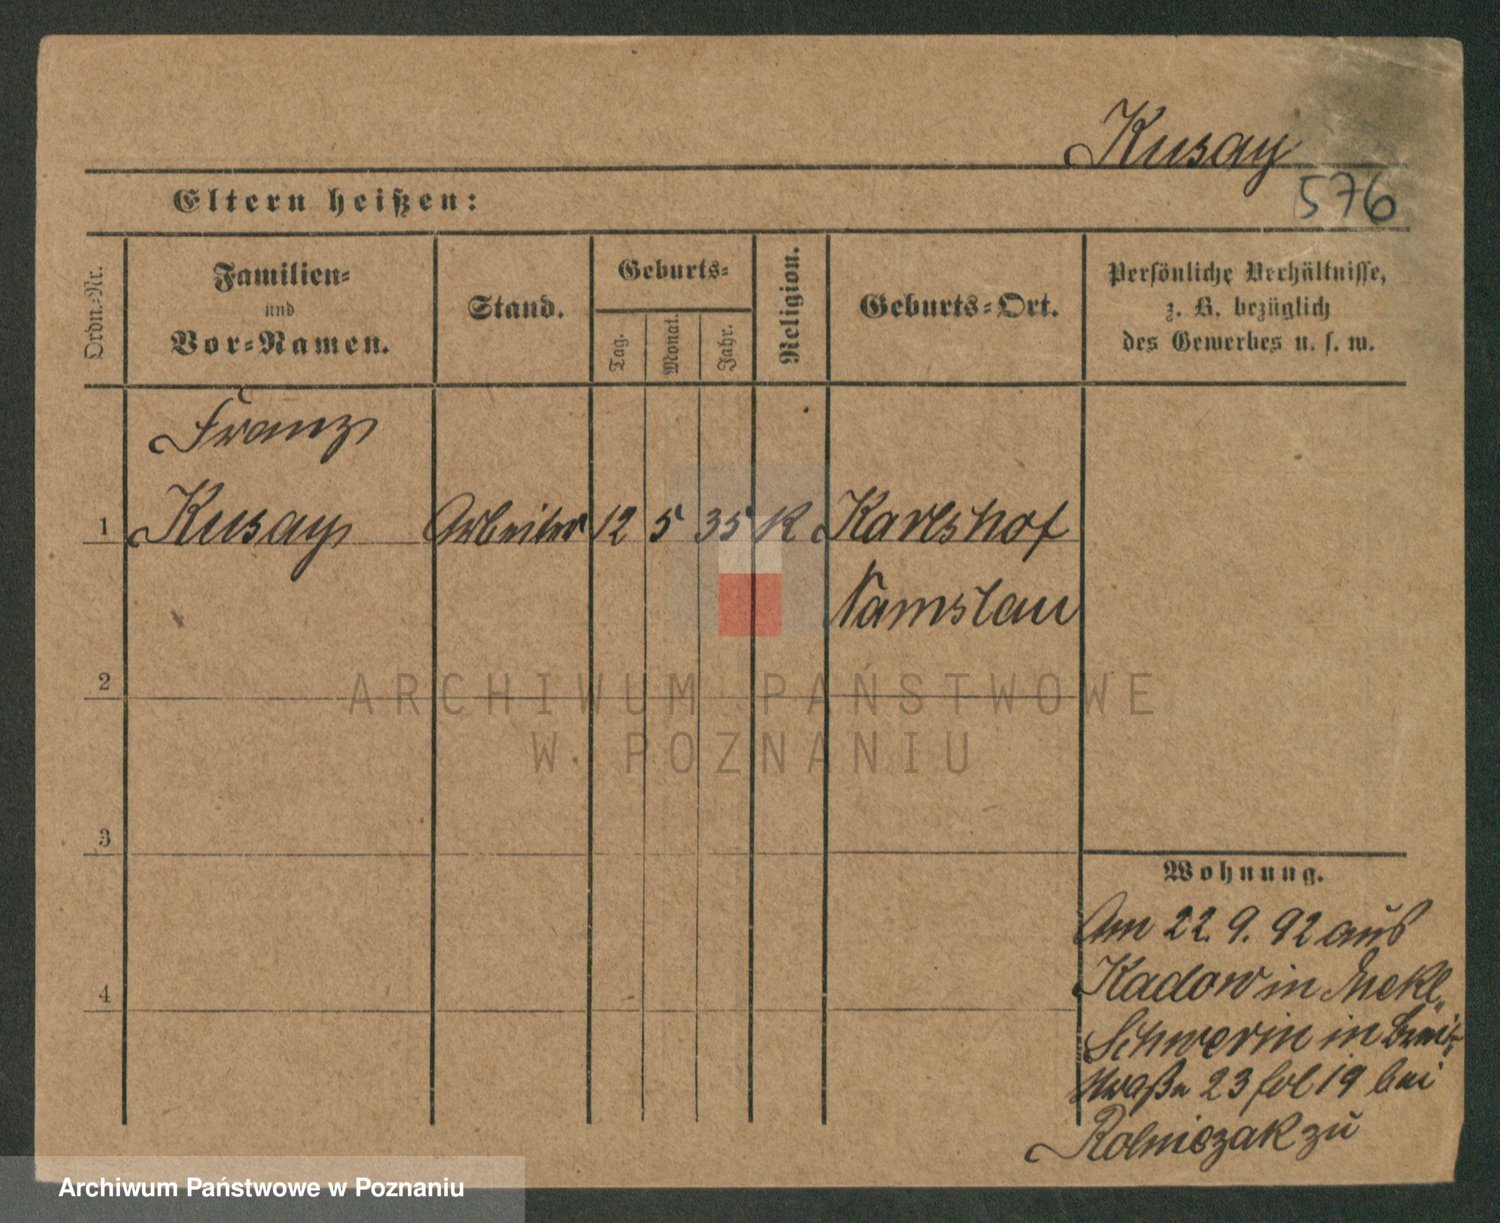 Kusay
576
Eltern heißen:
Ordn.-Nr.
Familien-
und
Vor-Namen.
Stand.
Geburts-
Tag.
Monat.
Jahr.
Religion.
Geburts-Ort.
Persönliche Verhältnisse,
z. B. bezüglich
des Gewerbes u. s. w.
Franz
1 Kusay Arbeiter 12 5 35 K Karlshof
Namslau
2
ARCHIWUM PAŃSTWOWE
W POZNANIU
3
Wohnung.
Am 22. 9. 92 aus
4
Kadow in Mekl.
Schwerin in Breit
straße 23 fol 19 bei
Rolniczak zu
Archiwum Państwowe w Poznaniu